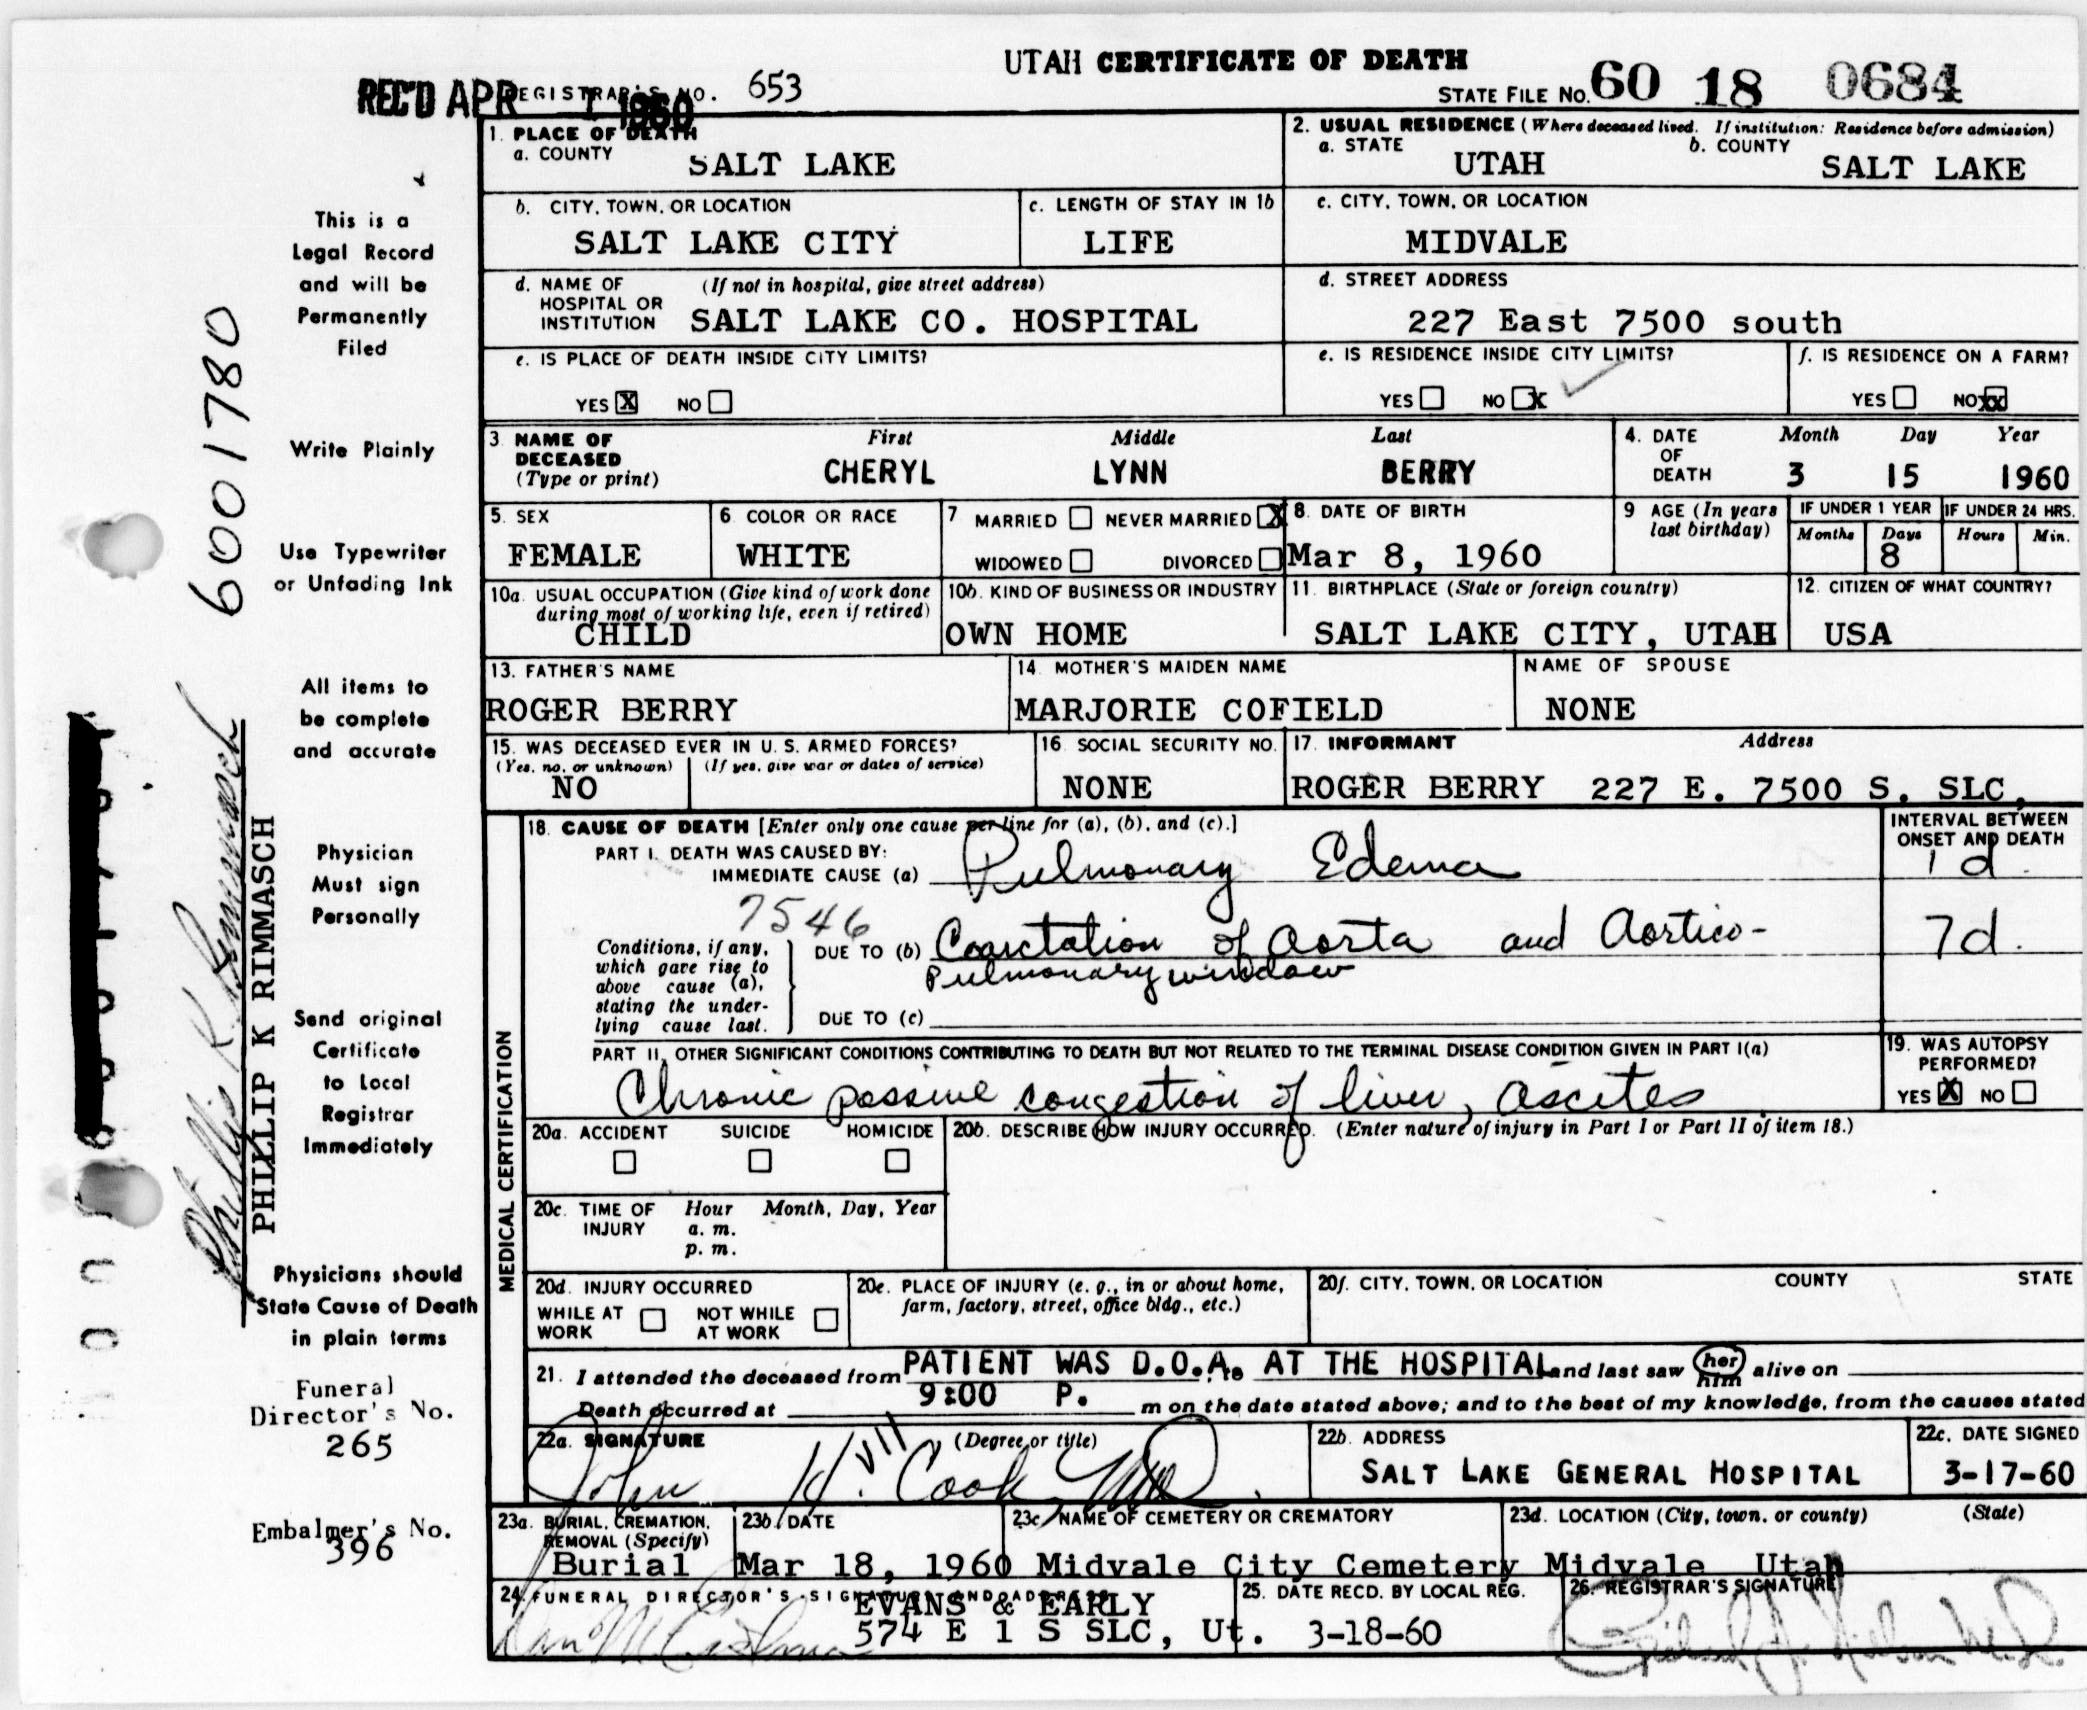 UTAH CERTIFICATE OF DEATH
REC'D APR 1 1960
REGISTRAR'S NO. 653
STATE FILE NO. 60 18 0684
1. PLACE OF DEATH
a. COUNTY
SALT LAKE
2. USUAL RESIDENCE (Where deceased lived. If institution: Residence before admission)
a. STATE
UTAH
b. COUNTY
SALT LAKE
b. CITY, TOWN, OR LOCATION
SALT LAKE CITY
c. LENGTH OF STAY IN 1b
LIFE
c. CITY, TOWN, OR LOCATION
MIDVALE
d. NAME OF HOSPITAL OR INSTITUTION
(If not in hospital, give street address)
SALT LAKE CO. HOSPITAL
d. STREET ADDRESS
227 East 7500 south
e. IS PLACE OF DEATH INSIDE CITY LIMITS?
YES X NO
e. IS RESIDENCE INSIDE CITY LIMITS?
YES NO X
f. IS RESIDENCE ON A FARM?
YES NO XX
3 NAME OF DECEASED
(Type or print)
First Middle Last
CHERYL LYNN BERRY
4. DATE OF DEATH
Month Day Year
3 15 1960
5. SEX
FEMALE
6 COLOR OR RACE
WHITE
7 MARRIED NEVER MARRIED X
WIDOWED DIVORCED
8. DATE OF BIRTH
Mar 8, 1960
9 AGE (In years last birthday)
IF UNDER 1 YEAR
Months Days
8
IF UNDER 24 HRS.
Hours Min.
10a. USUAL OCCUPATION (Give kind of work done during most of working life, even if retired)
CHILD
10b. KIND OF BUSINESS OR INDUSTRY
OWN HOME
11. BIRTHPLACE (State or foreign country)
SALT LAKE CITY, UTAH
12. CITIZEN OF WHAT COUNTRY?
USA
13. FATHER'S NAME
ROGER BERRY
14. MOTHER'S MAIDEN NAME
MARJORIE COFIELD
NAME OF SPOUSE
NONE
15. WAS DECEASED EVER IN U. S. ARMED FORCES?
(Yes, no, or unknown) (If yes, give war or dates of service)
NO
16. SOCIAL SECURITY NO.
NONE
17. INFORMANT Address
ROGER BERRY 227 E. 7500 S. SLC,
MEDICAL CERTIFICATION
18. CAUSE OF DEATH [Enter only one cause per line for (a), (b), and (c).]
INTERVAL BETWEEN ONSET AND DEATH
PART I. DEATH WAS CAUSED BY:
IMMEDIATE CAUSE (a) Pulmonary Edema
1 d.
7546
Conditions, if any, which gave rise to above cause (a), stating the underlying cause last.
DUE TO (b) Coarctation of Aorta and Aortico-
Pulmonary window
7 d.
DUE TO (c)
PART II. OTHER SIGNIFICANT CONDITIONS CONTRIBUTING TO DEATH BUT NOT RELATED TO THE TERMINAL DISEASE CONDITION GIVEN IN PART I(a)
Chronic passive congestion of liver, ascites
19. WAS AUTOPSY PERFORMED?
YES X NO
20a. ACCIDENT SUICIDE HOMICIDE
20b. DESCRIBE HOW INJURY OCCURRED. (Enter nature of injury in Part I or Part II of item 18.)
20c. TIME OF INJURY
Hour Month, Day, Year
a. m.
p. m.
20d. INJURY OCCURRED
WHILE AT WORK NOT WHILE AT WORK
20e. PLACE OF INJURY (e. g., in or about home, farm, factory, street, office bldg., etc.)
20f. CITY, TOWN, OR LOCATION COUNTY STATE
21. I attended the deceased from PATIENT WAS D.O.A. to AT THE HOSPITAL and last saw her him alive on
Death occurred at 9:00 P. m on the date stated above; and to the best of my knowledge, from the causes stated
22a. SIGNATURE (Degree or title)
John H. Cook VII MD
22b. ADDRESS
SALT LAKE GENERAL HOSPITAL
22c. DATE SIGNED
3-17-60
23a. BURIAL, CREMATION, REMOVAL (Specify)
Burial
23b. DATE
Mar 18, 1960
23c. NAME OF CEMETERY OR CREMATORY
Midvale City Cemetery
23d. LOCATION (City, town, or county) (State)
Midvale Utah
24. FUNERAL DIRECTOR'S SIGNATURE AND ADDRESS
EVANS & EARLY
574 E 1 S SLC, Ut.
25. DATE RECD. BY LOCAL REG.
3-18-60
26. REGISTRAR'S SIGNATURE
This is a
Legal Record
and will be
Permanently
Filed
Write Plainly
Use Typewriter
or Unfading Ink
All items to
be complete
and accurate
Physician
Must sign
Personally
Send original
Certificate
to Local
Registrar
Immediately
Physicians should
State Cause of Death
in plain terms
Funeral
Director's No.
265
Embalmer's No.
396
6001780
Phillip K Rimmasch
PHILLIP K RIMMASCH